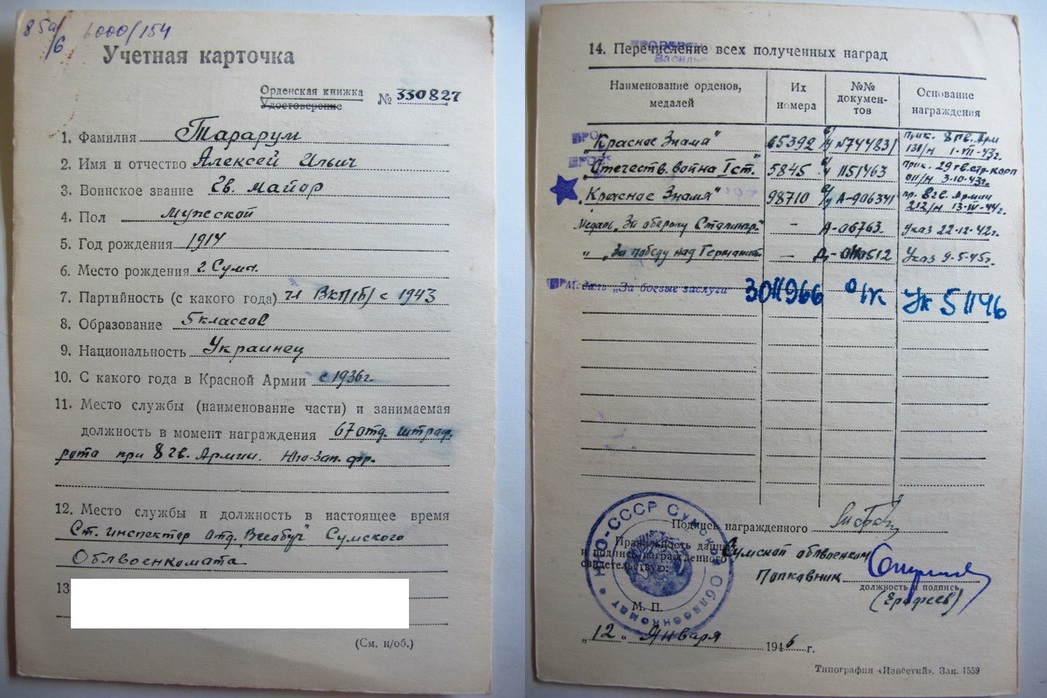 85а/6 6000/154
Учетная карточка
Орденская книжка
Удостоверение № 330827
1. Фамилия Тарарум
2. Имя и отчество Алексей Ильич
3. Воинское звание Гв. майор
4. Пол мужской
5. Год рождения 1914
6. Место рождения г. Сумы
7. Партийность (с какого года) чл ВКП(б) с 1943
8. Образование 5 классов
9. Национальность Украинец
10. С какого года в Красной Армии с 1936г.
11. Место службы (наименование части) и занимаемая
должность в момент награждения 67 отд. штраф.
рота при 8 гв. Армии. Юго-Зап. фр.
12. Место службы и должность в настоящее время
Ст. инспектор отд. Всевобуч Сумского
Облвоенкомата
13
(См. н/об.)
14. Перечисление всех полученных наград
Наименование орденов, медалей Их номера №№ документов Основание награждения
"Красное Знамя" 65392 о/к №744831 прик. 8 гв. Арм 131/н 1-VII-43г.
"Отечеств. война I ст." 5845 о/к 1151463 прик. 29 гв. стр. корп 011/н 3-10-43г.
"Красное Знамя" 98710 о/к А-906341 пр. 8 гв. Армии 212/н 13-IV-44г.
Медаль "За оборону Сталингр." – А-06763. Указ 22-12-42г.
" "За победу над Германией – Указ 9-5-45г.
Медаль "За боевые заслуги" 3011966 о/к Ук 5 11 46
Подпись награжденного
Правильность данных
и подпись награжденного
свидетельствую:
Сумской облвоенком
Полковник
должность и подпись
(Ерофеев)
М. П.
НКО-СССР Сумский Облвоенкомат
"12" Января 1946 г.
Типография «Известий». Зак. 1559